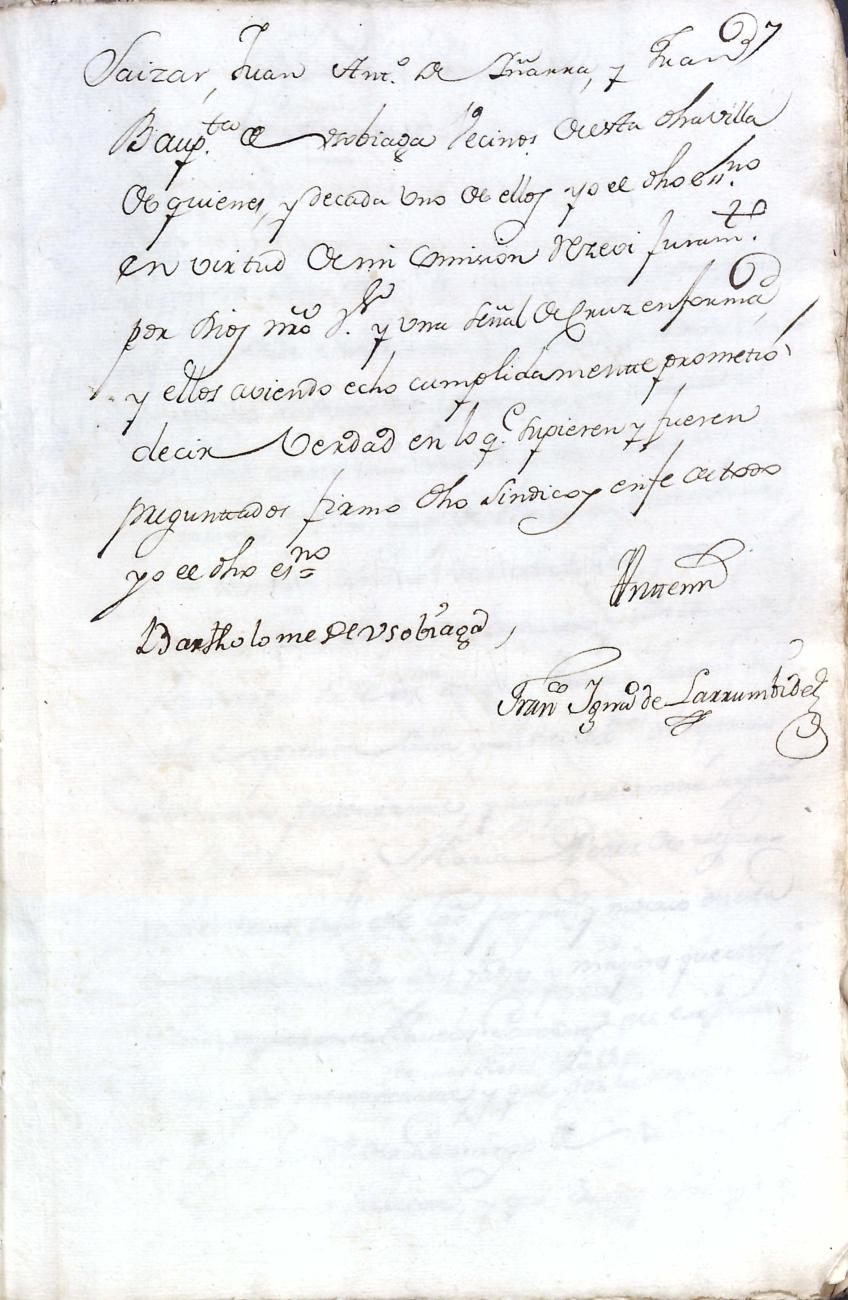 37
Saizar, Juan Ant.º de Iñarra, y Juan
Baup.ta de Vsobiaga Vecinos de esta dha villa
de quienes, y de cada Vno de ellos yo el dho ess.no
en virtud de mi Comision Rezevi Juram.to
por Dios nrô S.r y Vna Señal de Cruz en forma
y ellos aviendo echo cumplidamentte prometió
decir Verdad en lo q.e supieren y fueren
preguntados firmo dho Sindico y en fe de todo
yo el dho es.no =
Bartholome de Vsobiaga,
Antemi
Fran.co Ign.o de Larrumbide